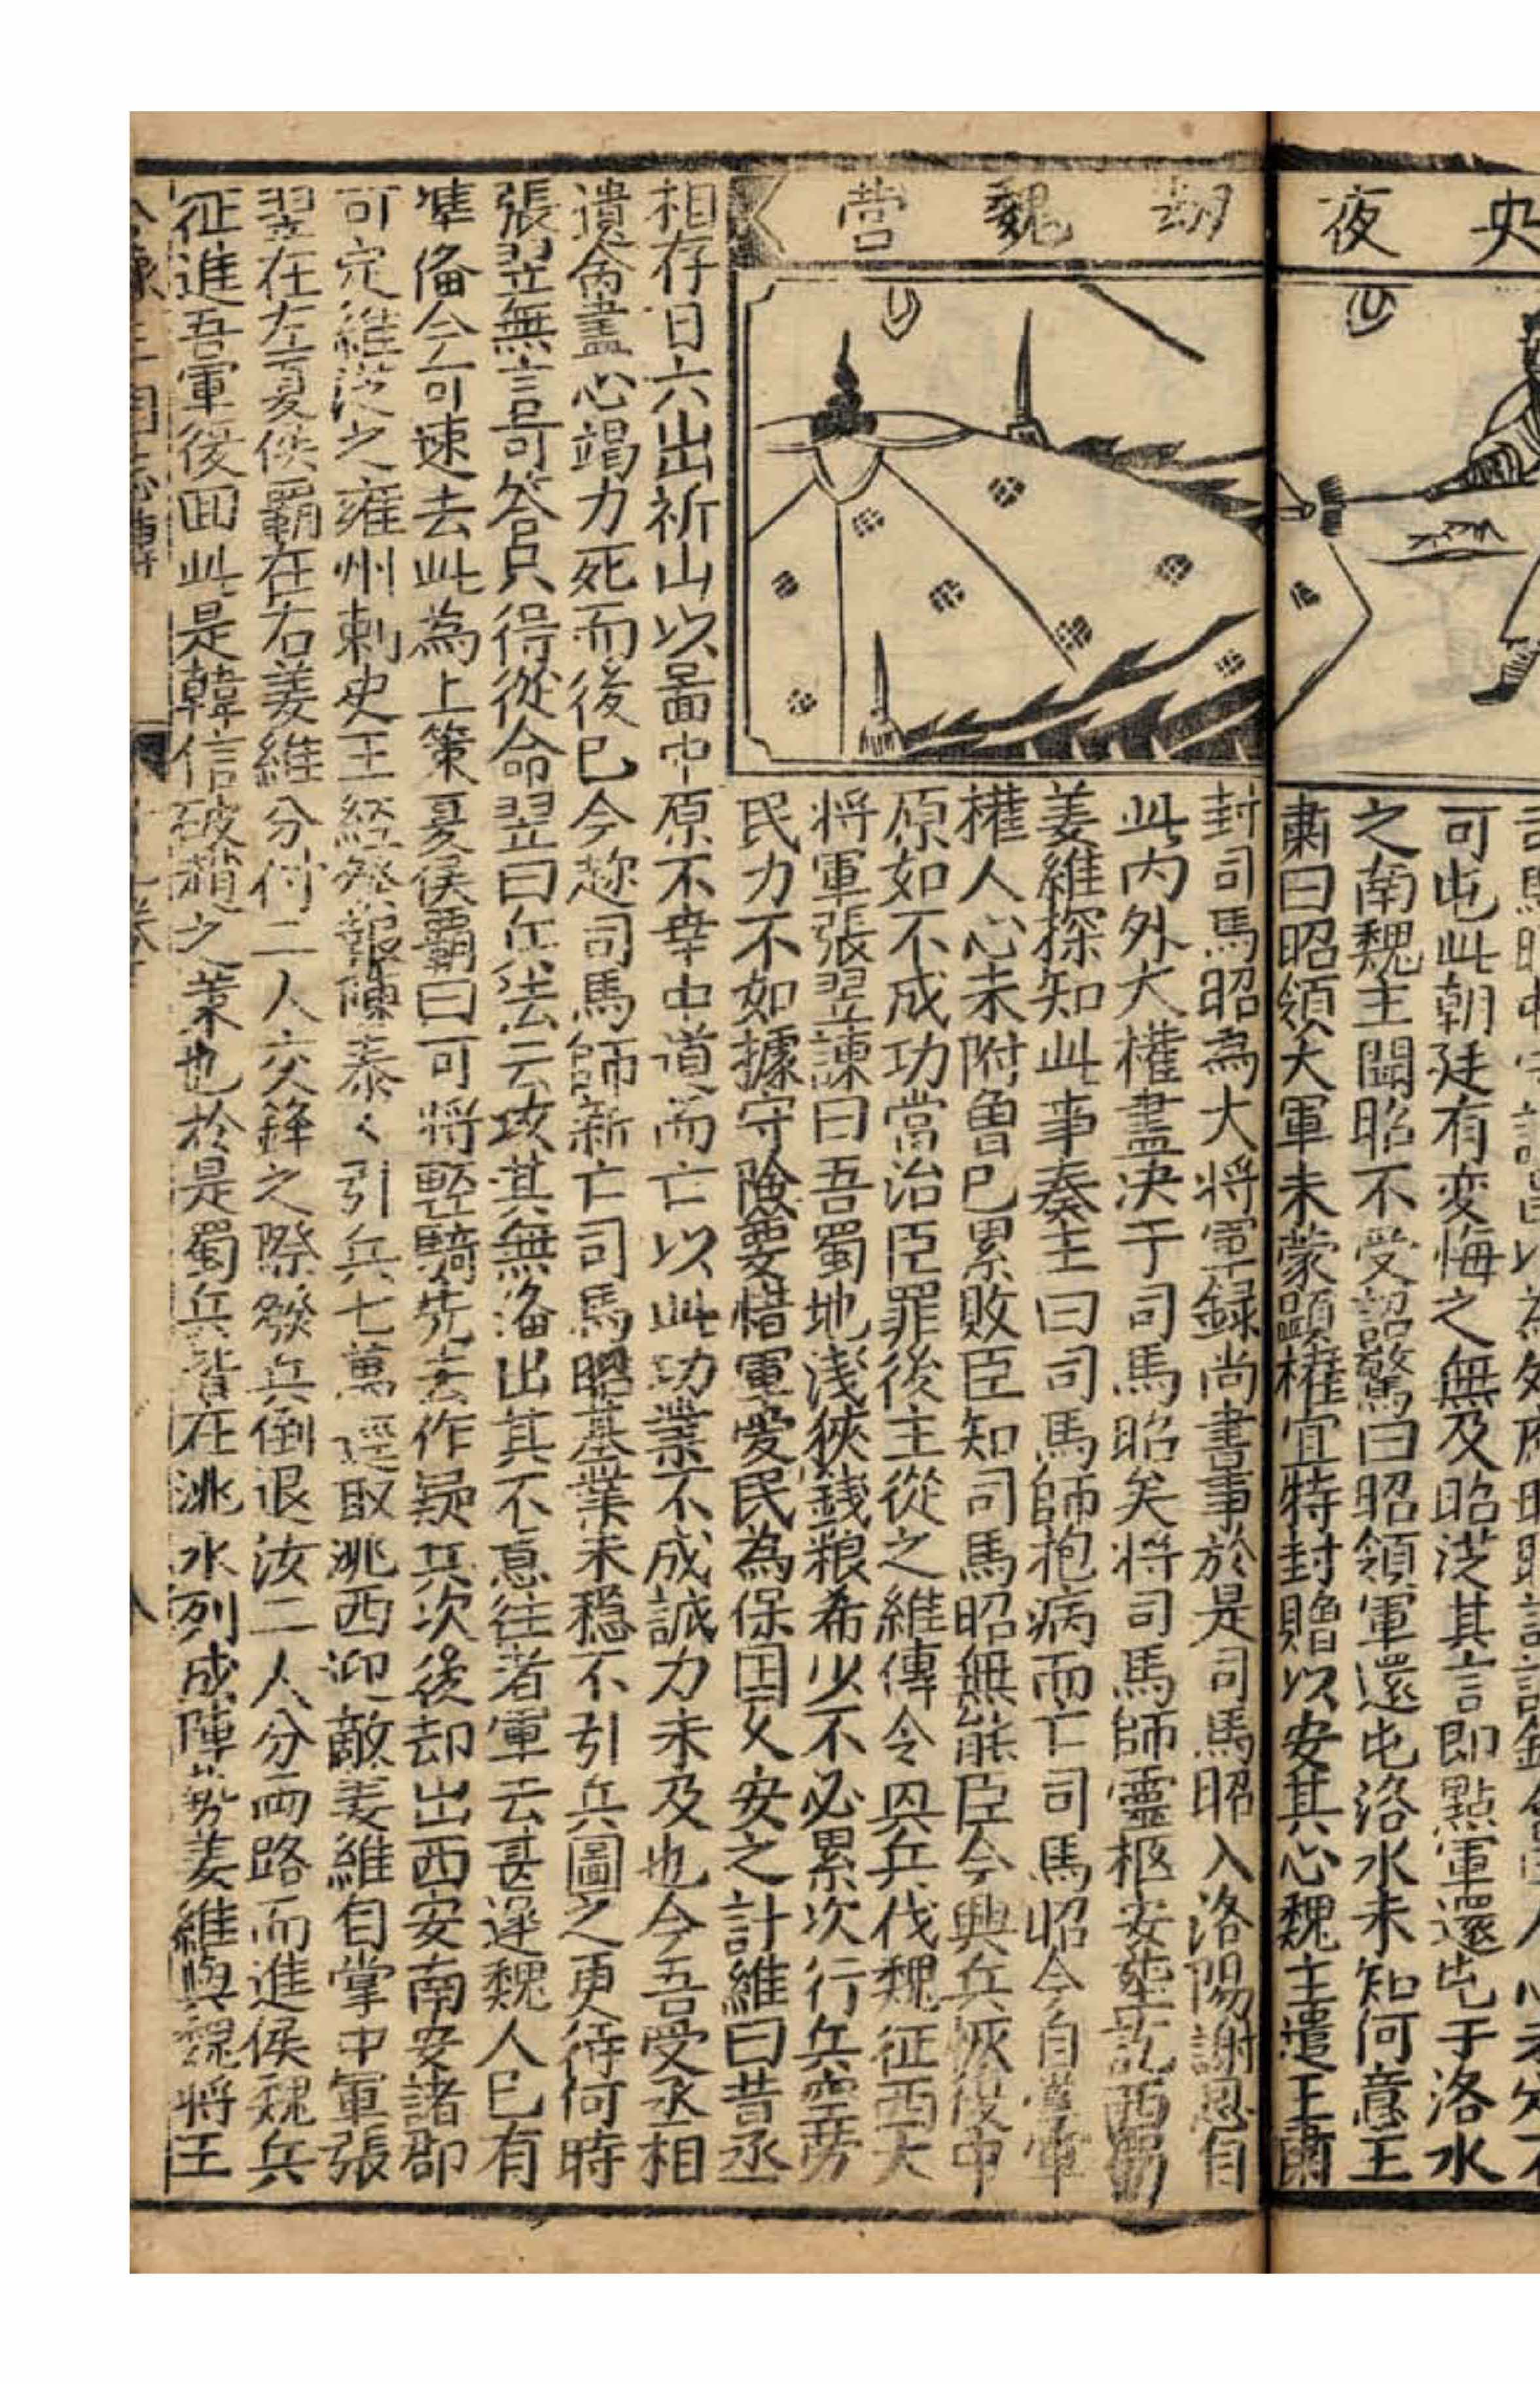 央夜
劫魏營
可屯此朝廷有变悔之無及昭從其言即點軍還屯于洛水
之南魏主聞昭不受詔驚曰昭領軍還屯洛水未知何意王
肅曰昭領大軍未蒙顯權宜特封贈以安其心魏主遣王肅
封司馬昭為大将軍録尚書事於是司馬昭入洛陽謝恩自
此内外大權盡决于司馬昭矣将司馬師靈柩安塟訖西蜀
姜維探知此事奏主曰司馬師抱病而亡司馬昭今自掌軍
權人心未附魯已累敗臣知司馬昭無能臣今興兵恢復中
原如不成功當治臣罪後主從之維傳令興兵伐魏征西大
将軍張翌諫曰吾蜀地浅狹錢粮希少不必累次行兵空劳
民力不如據守險要惜軍愛民為保国久安之計維曰昔丞
相存日六出祈山以啚中原不幸中道而亡以此功業不成誠力未及也今吾受丞相
遺命盡心竭力死而後已今趂司馬師新亡司馬昭基業未穏不引兵圖之更待何時
張翌無言可答只得從命翌曰兵法云攻其無俻出其不意往者軍云甚遲魏人已有
凖俻今可速去此為上策夏侯霸曰可将輕騎先去作疑兵次後却出西安南安諸郡
可定維從之雍州剌史王經飛報陳泰〻引兵七萬逕取洮西迎敵姜維自掌中軍張
翌在左夏侯霸在右姜維分付二人交鋒之際發兵倒退汝二人分兩路而進侯魏兵
征進吾軍後囬此是韓信破趙之策也於是蜀兵背在洮水列成陣势姜維與魏将王